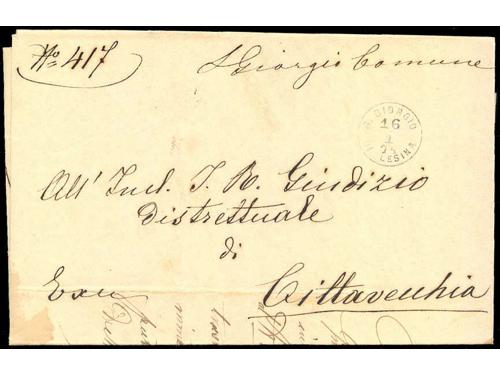 No 417
S Giorgio Comune
S. GIORGIO
16
1
LESINA
All' Incl. I. R. Giudizio
Distrettuale
di
Cittavecchia